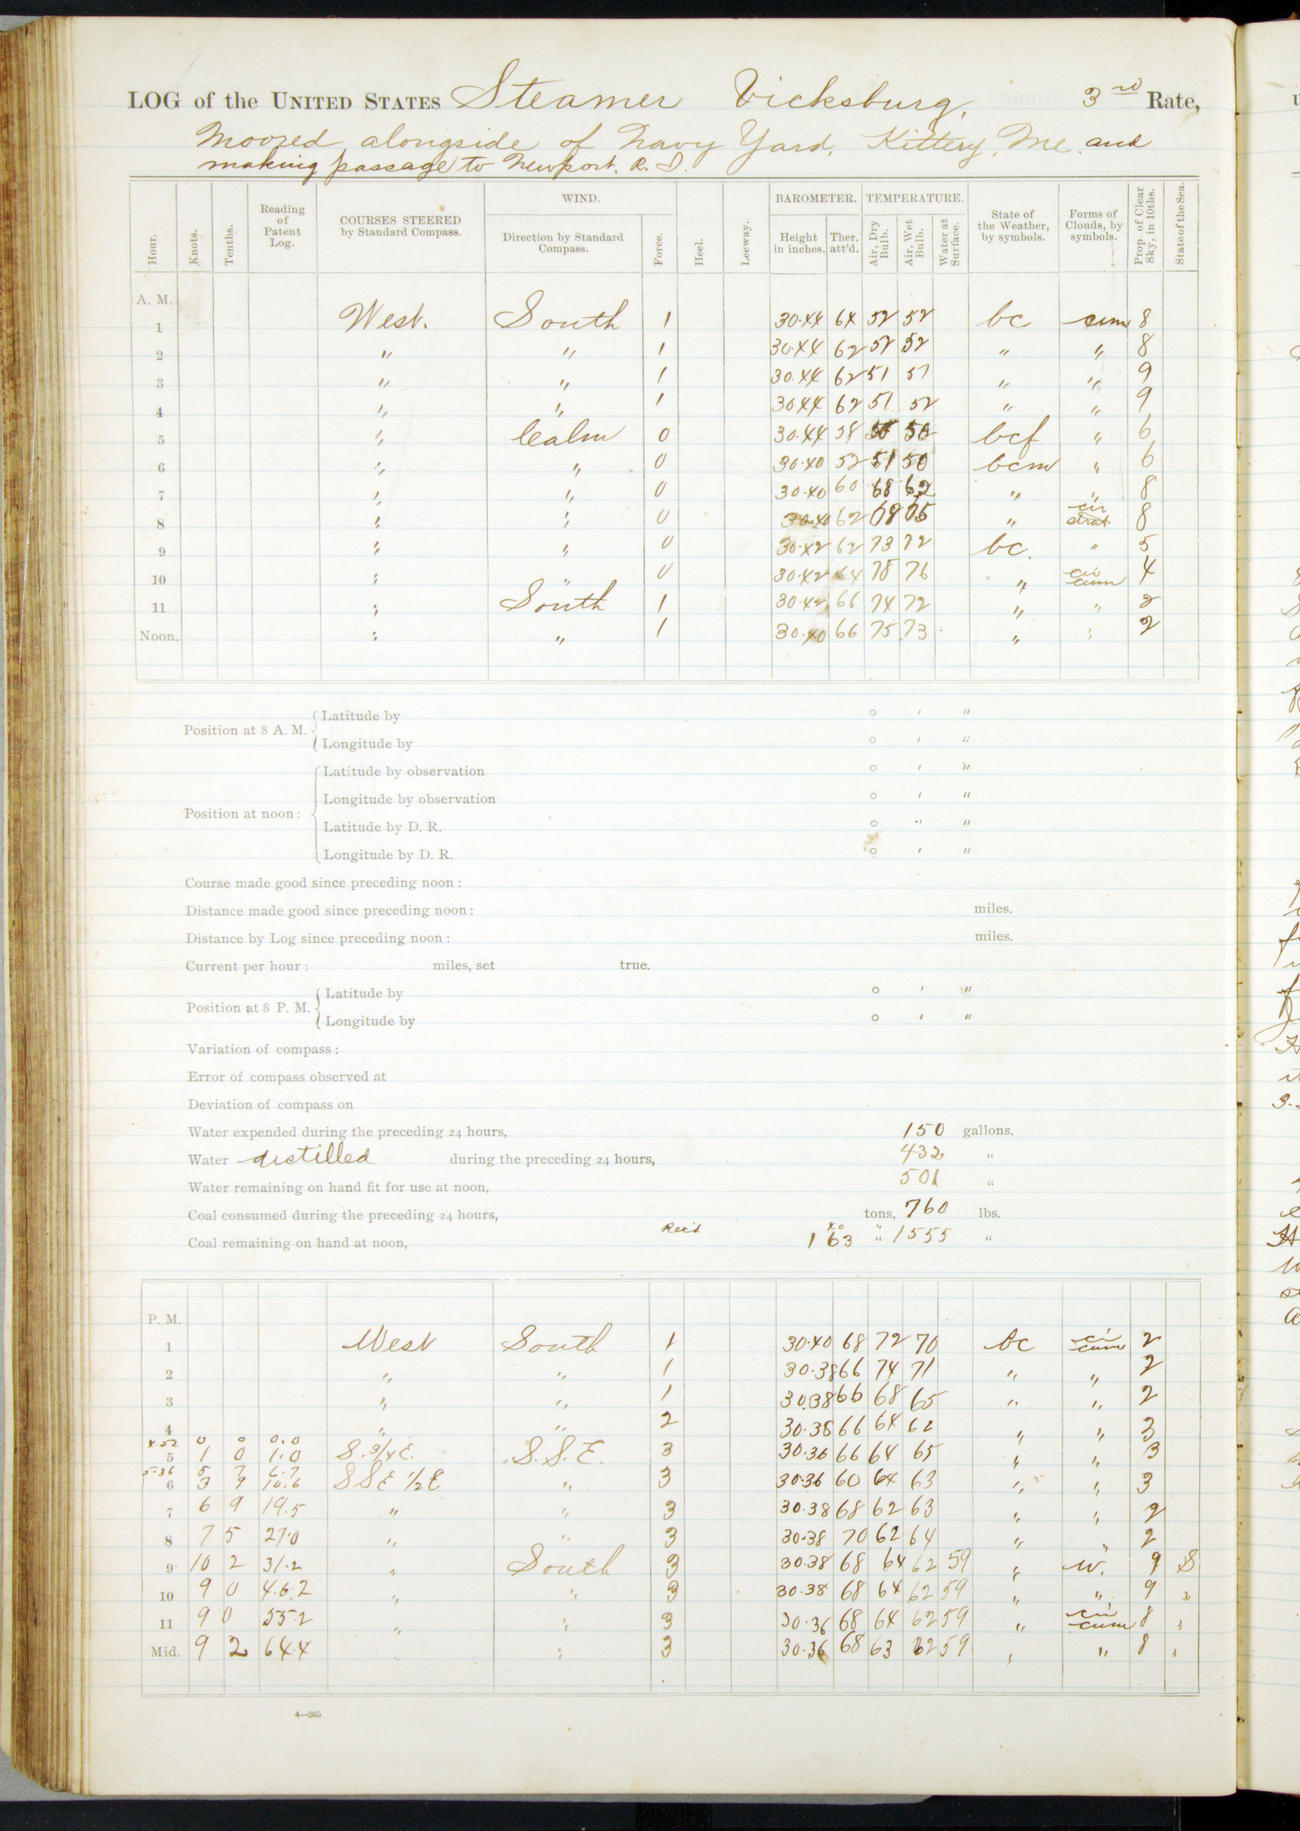 LOG of the UNITED STATES Steamer Vicksburg, 3rd Rate,
Moored alongside of Navy Yard, Kittery, Me. and
making passage to Newport. R. I.
Hour. Knots. Tenths. Reading of Patent Log. COURSES STEERED by Standard Compass. WIND. Direction by Standard Compass. Force. Heel. Leeway. BAROMETER. Height in inches. Ther. att'd. TEMPERATURE. Air, Dry Bulb. Air, Wet Bulb. Water at Surface. State of the Weather, by symbols. Forms of Clouds, by symbols. Prop. of Clear Sky, in 10ths. State of the Sea.
A. M.
1 West. South 1 30.44 64 52 52 bc cum 8
2 " " 1 30.44 62 52 52 " " 8
3 " " 1 30.44 62 51 51 " " 9
4 " " 1 30.44 62 51 52 " " 9
5 " Calm 0 30.44 58 50 bcf " 6
6 " " 0 30.40 52 51 50 bcm " 6
7 " " 0 30.40 60 68 62 " " 8
8 " " 0 30.40 62 68 65 " cir strat 8
9 " " 0 30.42 62 73 72 bc. " 5
10 " " 0 30.42 64 78 76 " cir cum 4
11 " South 1 30.42 66 74 72 " " 2
Noon. " " 1 30.40 66 75 73 " " 2
Position at 8 A. M. Latitude by ° ' "
Longitude by ° ' "
Position at noon: Latitude by observation ° ' "
Longitude by observation ° ' "
Latitude by D. R. ° ' "
Longitude by D. R. ° ' "
Course made good since preceding noon:
Distance made good since preceding noon: miles.
Distance by Log since preceding noon: miles.
Current per hour: miles, set true.
Position at 8 P. M. Latitude by ° ' "
Longitude by ° ' "
Variation of compass:
Error of compass observed at
Deviation of compass on
Water expended during the preceding 24 hours, 150 gallons.
Water distilled during the preceding 24 hours, 432 "
Water remaining on hand fit for use at noon, 501 "
Coal consumed during the preceding 24 hours, tons, 760 lbs.
Coal remaining on hand at noon, Rec'd 40 163 " 1555 "
P. M.
1 West South 1 30.40 68 72 70 bc cir cum 2
2 " " 1 30.38 66 74 71 " " 2
3 " " 1 30.38 66 68 65 " " 2
4 " " 2 30.38 66 64 62 " " 3
4.52 0 0 0.0
5 1 0 1.0 S. 3/4 E. S. S. E. 3 30.36 66 64 65 " " 3
5.36 5 7 6.7
6 3 9 10.6 SSE 1/2 E " 3 30.36 60 64 63 " " 3
7 6 9 19.5 " " 3 30.38 68 62 63 " " 2
8 7 5 27.0 " " 3 30.38 70 62 64 " " 2
9 10 2 31.2 " South 3 30.38 68 64 62 59 " 9 S
10 9 0 46.2 " " 3 30.38 68 64 62 59 " " 9 "
11 9 0 55.2 " " 3 30.36 68 64 62 59 " cir cum 8 "
Mid. 9 2 64.4 " " 3 30.36 68 63 62 59 " " 8 "
4—265